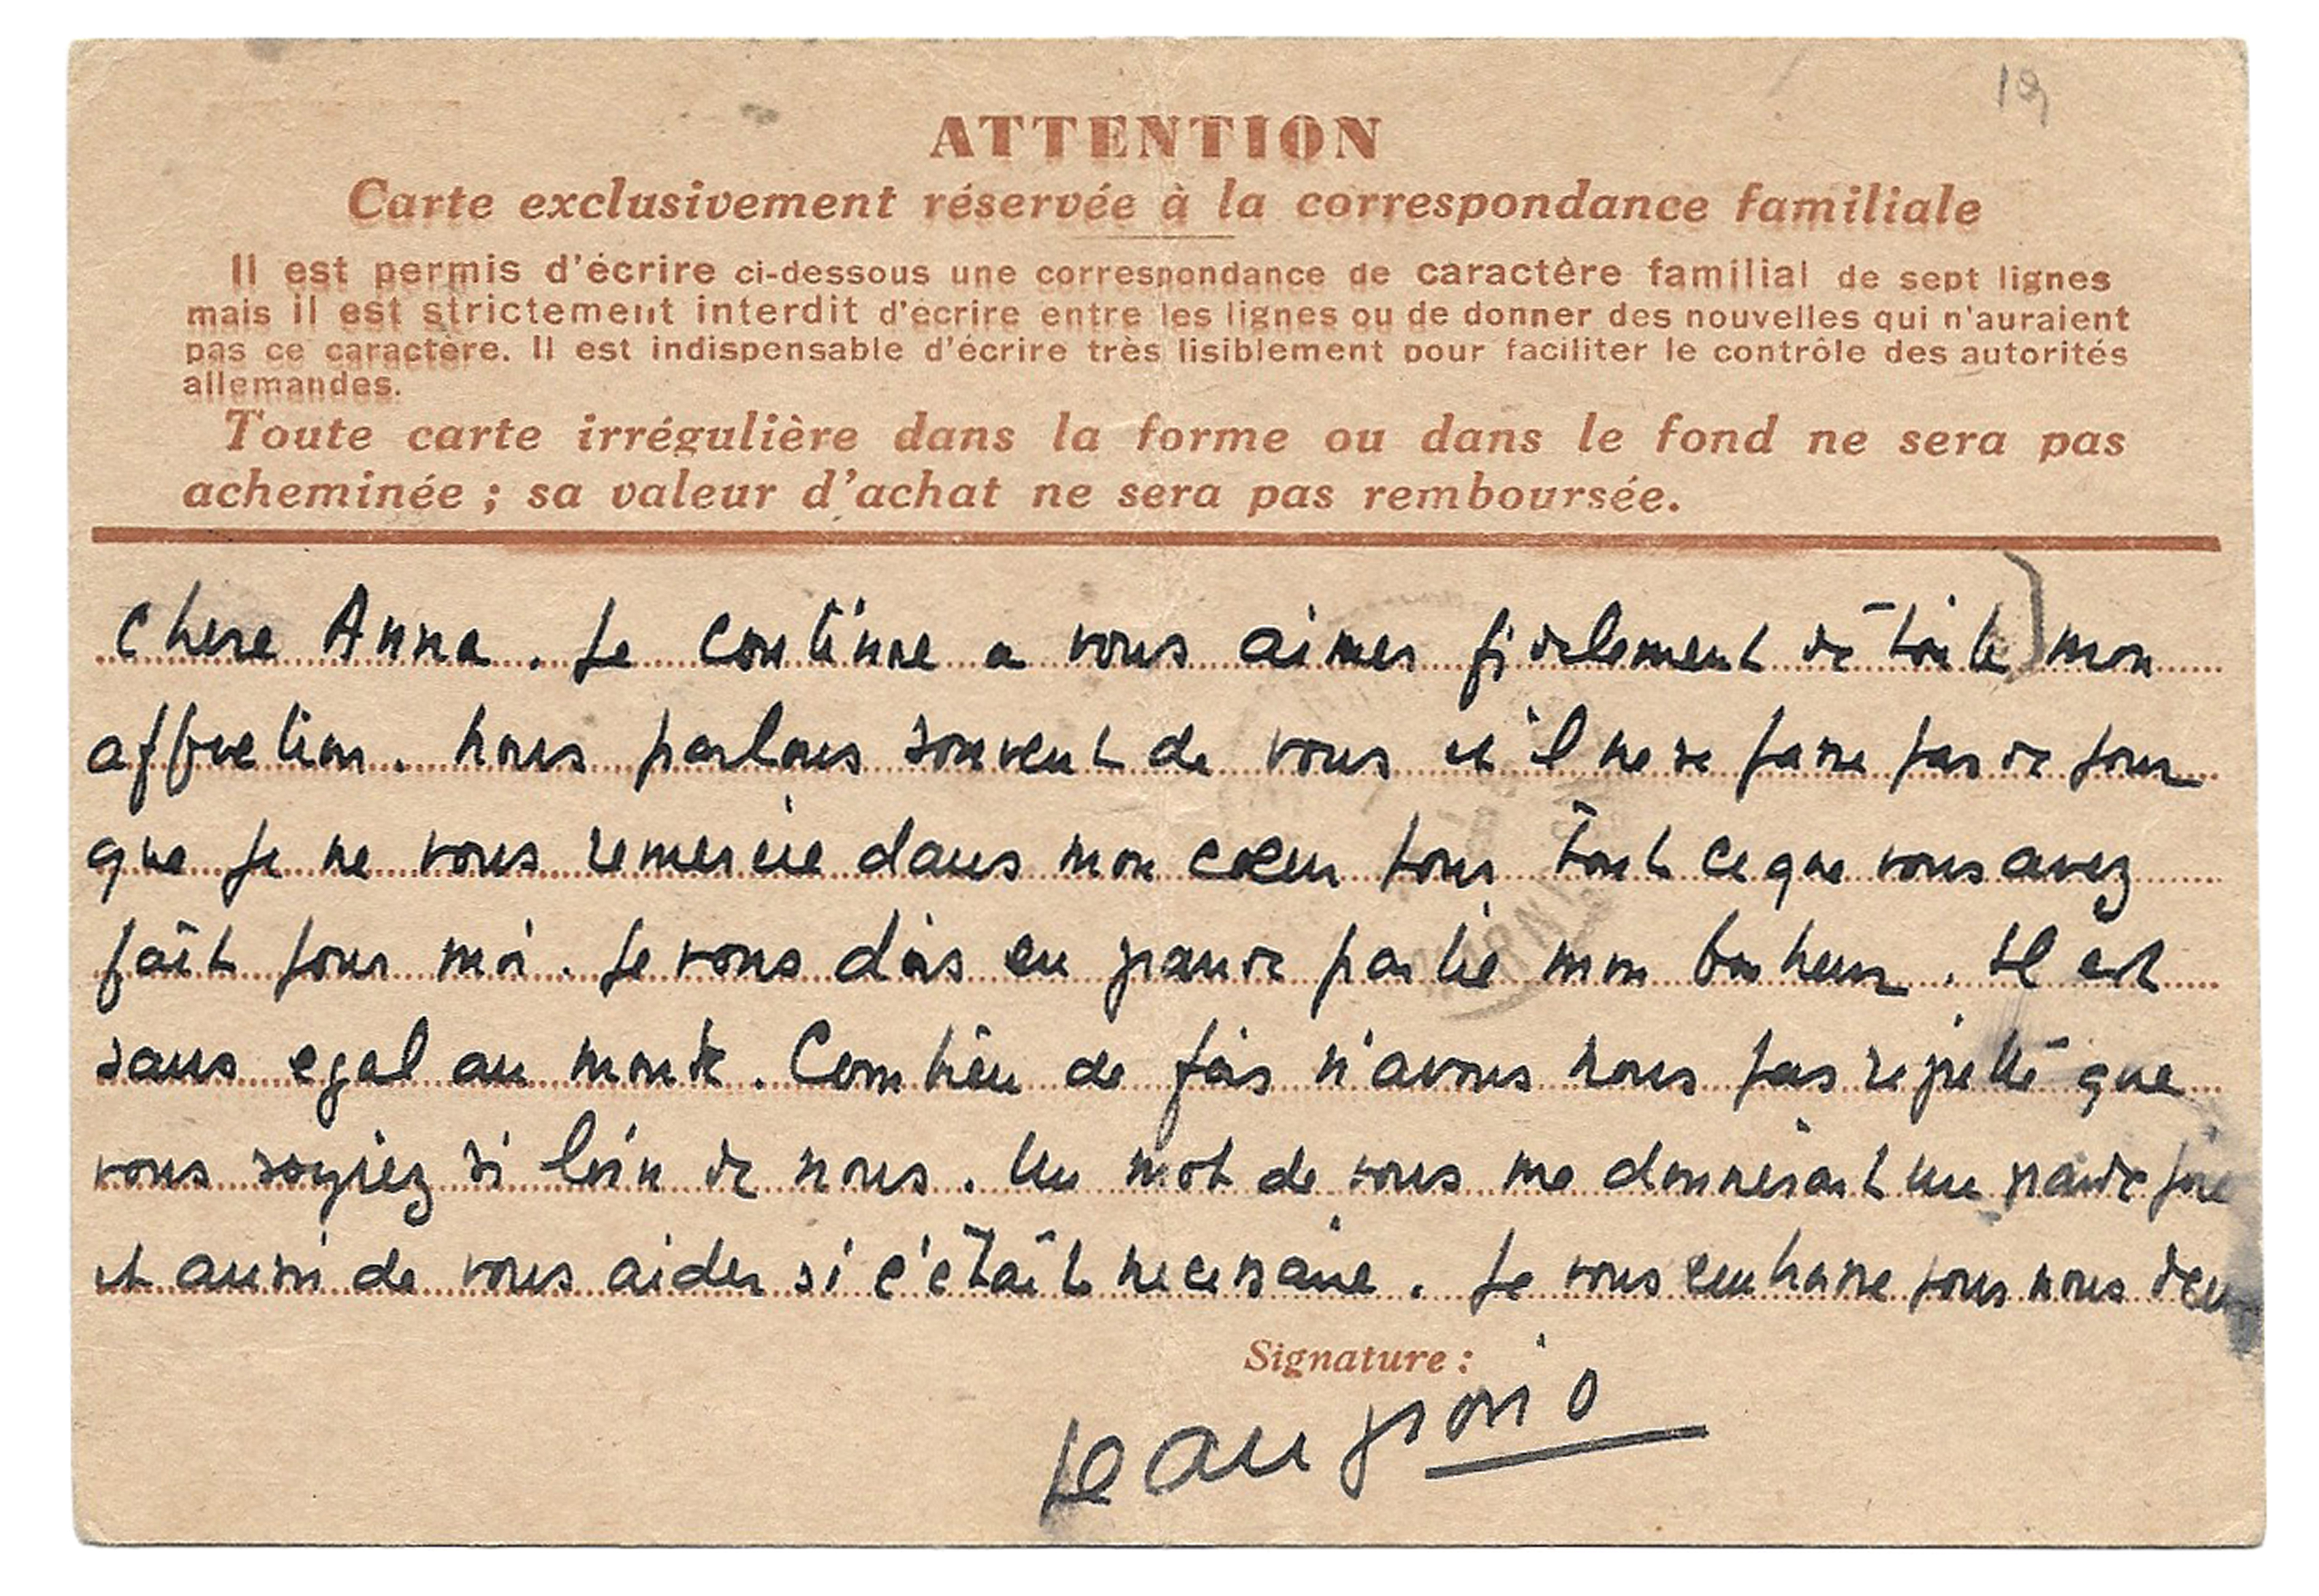 19
ATTENTION
Carte exclusivement réservée à la correspondance familiale
Il est permis d'écrire ci-dessous une correspondance de caractère familial de sept lignes
mais il est strictement interdit d'écrire entre les lignes ou de donner des nouvelles qui n'auraient
pas ce caractère. Il est indispensable d'écrire très lisiblement pour faciliter le contrôle des autorités
allemandes.
Toute carte irrégulière dans la forme ou dans le fond ne sera pas
acheminée ; sa valeur d'achat ne sera pas remboursée.
Chere Anna. Je continue a vous aimer fidelement de toute mon
affection. Nous parlons souvent de vous et il ne se passe pas de jour
que je ne vous remercie dans mon cœur pour tout ce que vous avez
fait pour moi. Je vous dois en grande partie mon bonheur. Il est
sans egal au monde. Combien de fois n'avons nous pas que
vous soyiez si loin de nous. Un mot de vous me donnerait une grande joie
et aussi de vous aider si c'était necessaire. Je vous embrasse pour nous deux
Signature :
Jean giono